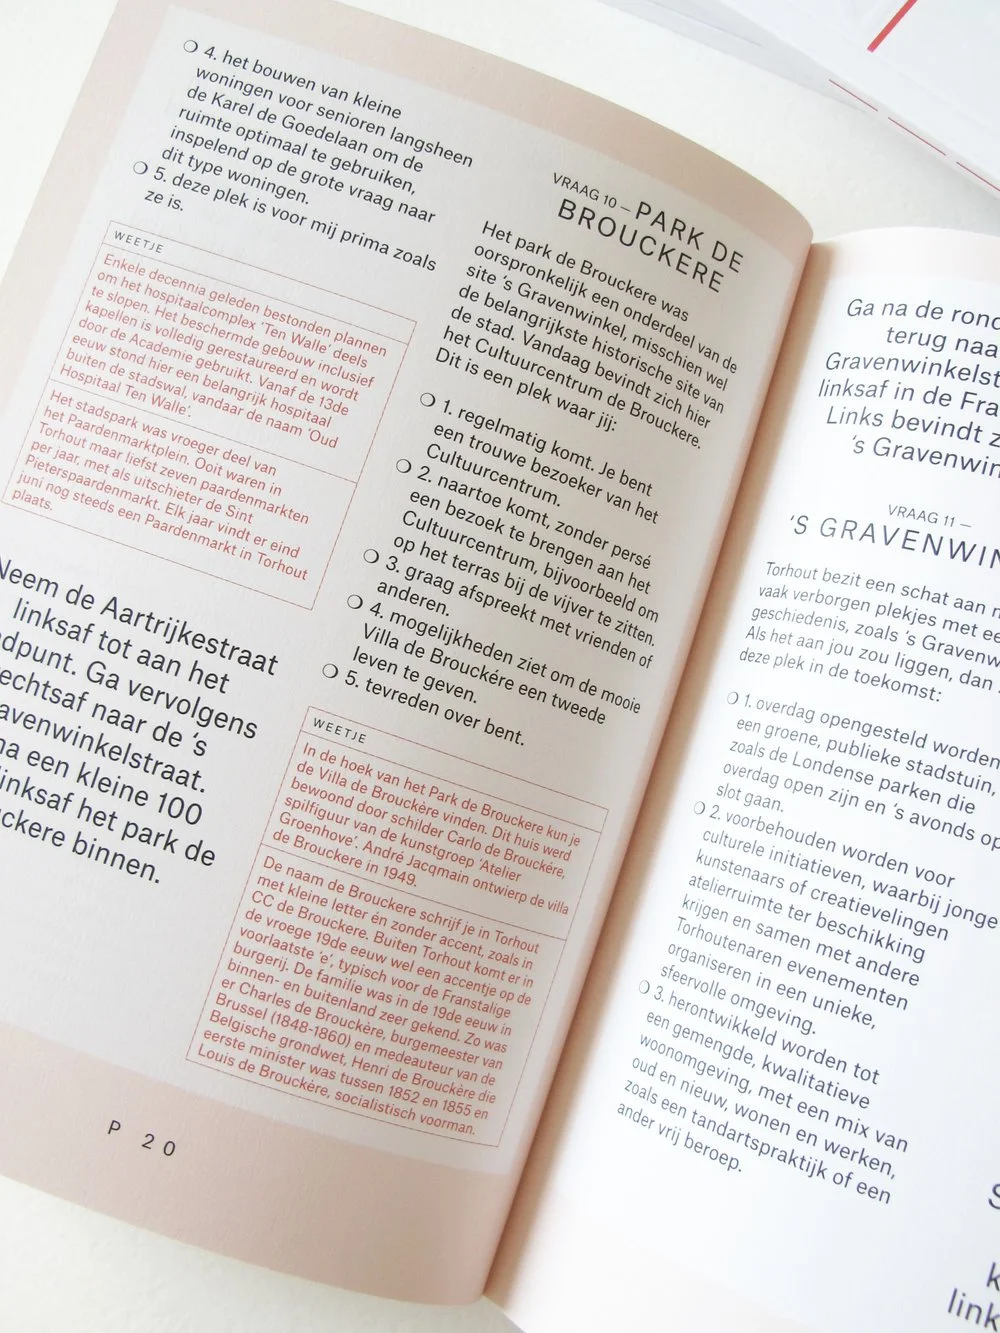 4. het bouwen van kleine
woningen voor senioren langsheen
de Karel de Goedelaan om de
ruimte optimaal te gebruiken,
inspelend op de grote vraag naar
dit type woningen.
5. deze plek is voor mij prima zoals
ze is.
WEETJE
Enkele decennia geleden bestonden plannen
om het hospitaalcomplex ‘Ten Walle’ deels
te slopen. Het beschermde gebouw inclusief
kapellen is volledig gerestaureerd en wordt
door de Academie gebruikt. Vanaf de 13de
eeuw stond hier een belangrijk hospitaal
buiten de stadswal, vandaar de naam ‘Oud
Hospitaal Ten Walle’.
Het stadspark was vroeger deel van
het Paardenmarktplein. Ooit waren in
Torhout maar liefst zeven paardenmarkten
per jaar, met als uitschieter de Sint
Pieterspaardenmarkt. Elk jaar vindt er eind
juni nog steeds een Paardenmarkt in Torhout
plaats.
Neem de Aartrijkestraat
linksaf tot aan het
dpunt. Ga vervolgens
echtsaf naar de ‘s
avenwinkelstraat.
na een kleine 100
linksaf het park de
ckere binnen.
P 20
VRAAG 10 – PARK DE
BROUCKERE
Het park de Brouckere was
oorspronkelijk een onderdeel van de
site ‘s Gravenwinkel, misschien wel
de belangrijkste historische site van
de stad. Vandaag bevindt zich hier
het Cultuurcentrum de Brouckere.
Dit is een plek waar jij:
1. regelmatig komt. Je bent
een trouwe bezoeker van het
Cultuurcentrum.
2. naartoe komt, zonder persé
een bezoek te brengen aan het
Cultuurcentrum, bijvoorbeeld om
op het terras bij de vijver te zitten.
3. graag afspreekt met vrienden of
anderen.
4. mogelijkheden ziet om de mooie
Villa de Brouckére een tweede
leven te geven.
5. tevreden over bent.
WEETJE
In de hoek van het Park de Brouckere kun je
de Villa de Brouckère vinden. Dit huis werd
bewoond door schilder Carlo de Brouckére,
spilfiguur van de kunstgroep ‘Atelier
Groenhove’. André Jacqmain ontwierp de villa
de Brouckere in 1949.
De naam de Brouckere schrijf je in Torhout
met kleine letter én zonder accent, zoals in
CC de Brouckere. Buiten Torhout komt er in
de vroege 19de eeuw wel een accentje op de
voorlaatste ‘e’, typisch voor de Franstalige
burgerij. De familie was in de 19de eeuw in
binnen- en buitenland zeer gekend. Zo was
er Charles de Brouckére, burgemeester van
Brussel (1848-1860) en medeauteur van de
Belgische grondwet, Henri de Brouckére die
eerste minister was tussen 1852 en 1855 en
Louis de Brouckére, socialistisch voorman.
Ga na de rond
terug naa
Gravenwinkelst
linksaf in de Fra
Links bevindt z
‘s Gravenwin
VRAAG 11 –
‘S GRAVENWIN
Torhout bezit een schat aan
vaak verborgen plekjes met ee
geschiedenis, zoals ‘s Gravenw
Als het aan jou zou liggen, dan
deze plek in de toekomst:
1. overdag opengesteld worden
een groene, publieke stadstuin,
zoals de Londense parken die
overdag open zijn en ‘s avonds op
slot gaan.
2. voorbehouden worden voor
culturele initiatieven, waarbij jonge
kunstenaars of creatievelingen
atelierruimte ter beschikking
krijgen en samen met andere
Torhoutenaren evenementen
organiseren in een unieke,
sfeervolle omgeving.
3. herontwikkeld worden tot
een gemengde, kwalitatieve
woonomgeving, met een mix van
oud en nieuw, wonen en werken,
zoals een tandartspraktijk of een
ander vrij beroep.
S
k
link